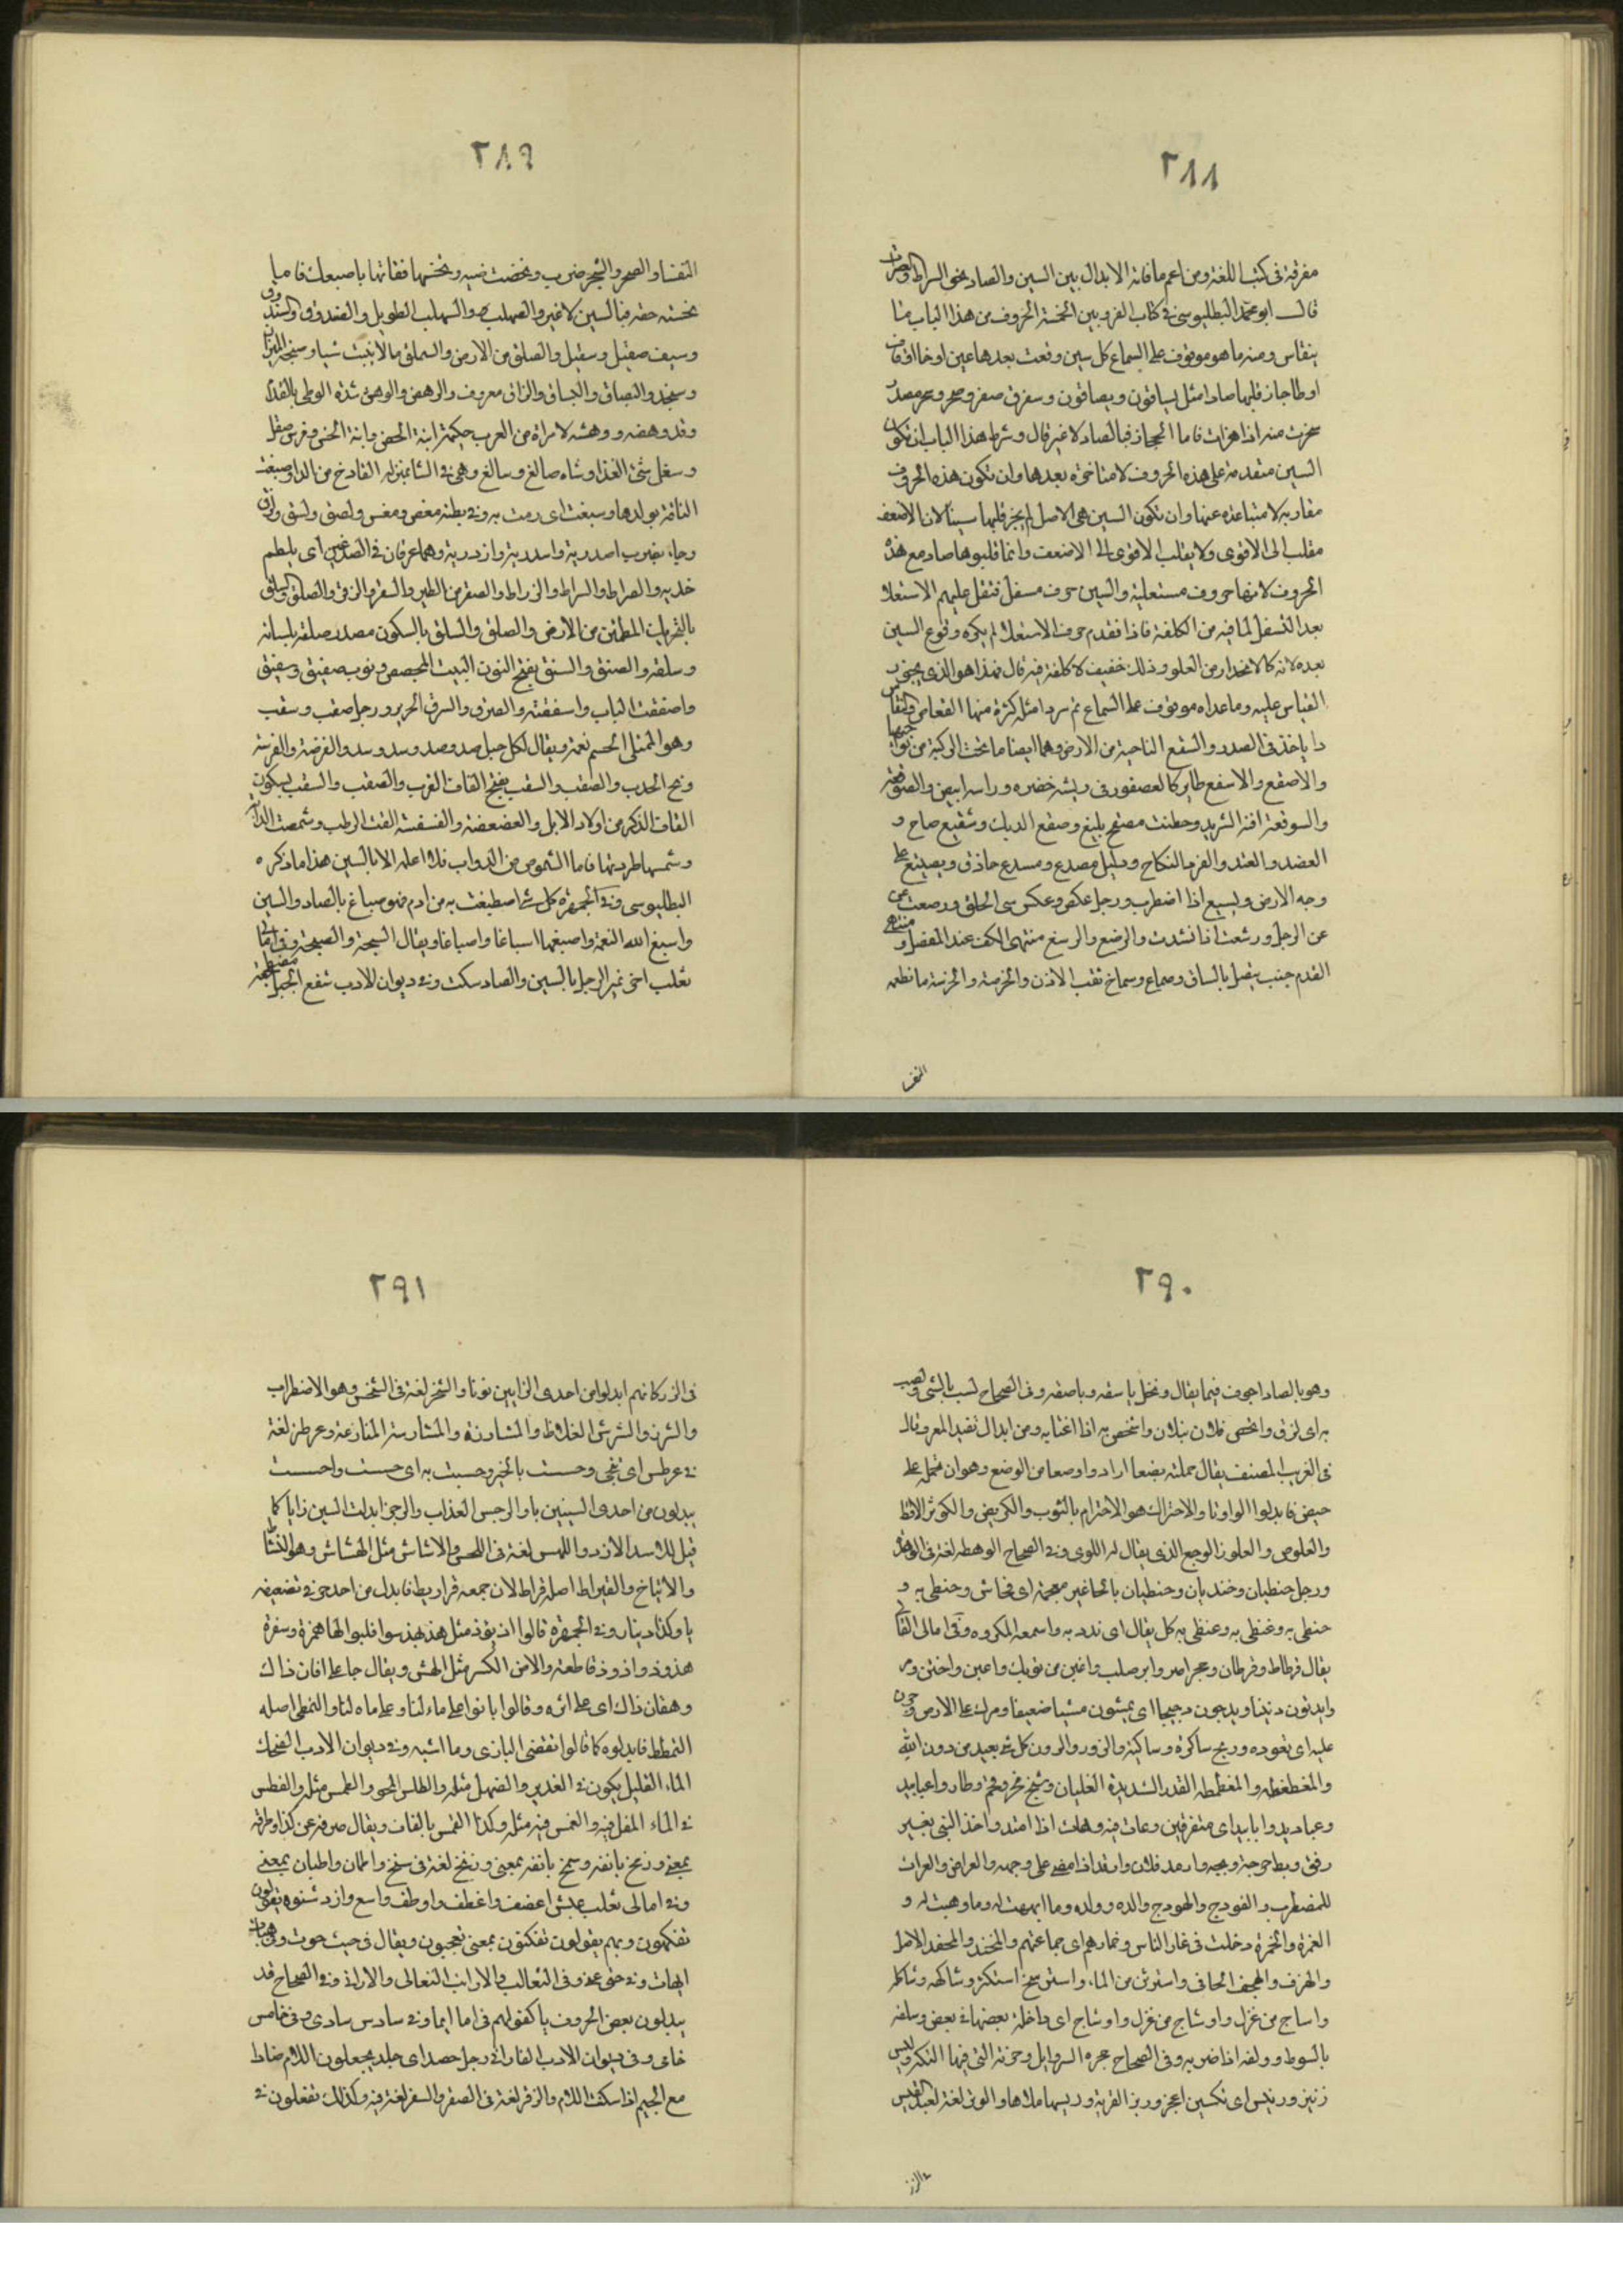 ٢٨٨
مفرقة فى كتب اللغة ومن اعم ما فاته الابدال بين السين والصاد نحو السراط والصراط
قال ابو محمد البطليوسى فى كتاب الفرق بين الخمسة الحروف من هذا الباب ما
ينقاس ومنه ما هو موقوف على السماع كل سين وقعت بعدها عين او خا او قاف
او طا جاز قلبها صادا مثل يساقون ويصاقون وسقر وصقر وصخر وسخر مصدر
سخرت منه اذا هزات فاما الحجارة فبالصاد لا غير قال وشرط هذا الباب ان تكون
السين متقدمة على هذه الحروف لا متاخرة بعدها وان تكون هذه الحروف
مقاربه لا متباعده عنها وان تكون السين هى الاصل لم يجز قلبها سينا لان الاضعف
مقلب الى الاقوى ولا يقلب الاقوى الى الاضعف وانما قلبوها صاد مع هذه
الحروف لانها حروف مستعلية والسين حرف مسفل فثقل عليهم الاستعلا
بعد التسفل لما فيه من الكلفة فاذا تقدم حرف الاستعلا لم يكره وقوع السين
بعده لانه كالانحدار من العلو وذلك خفيف لا كلفة فيه قال فهذا هو الذى يجوز
القياس عليه وما عداه موقوف على السماع ثم سرد امثله كثرة منها القعاص والقعاس
دا ياخذ فى الصدر والسقع الناحية من الارض وهما ايضا ما تحت الركية من نواحيها
والاصقع والاسقع طاير كالعصفور فى ريشه خضره وراسه ابيض والصوقعة
والسوقعة اقنة الثريد وخطيب مصقع بليغ وصقع الديك وسقع صاح و
العضد والعتد والعزم النكاح ودليل مصدع ومسدع حاذق ويصيع على
وجه الارض ويسيع اذا اضطرب ورجل عكص وعكس سى الخلق ورصعت عين
عن الرجل ورسعت اذا فسدت والرصغ والرسغ منتهى الكف عند المفصل ومنتهى
القدم حيث يتصل بالساق وصماخ وسماخ ثقب الاذن والخرصة والخرسة ما تطعمه
النفسا
٢٨٩
النفسا والصخر والسخر ضرب ونخصت
بخسته حقه فبالسين لا غير والصهلب والسهلب الطويل والصندوق والسندوق
وسيف صقيل وسقيل والصلق من الارض والسملق ما لا ينبت شيا وسنجة الميزان
وصنجة والبصاق والبساق والبزاق معروف والوهص والوهس شدة الوطى بالقدم
وقد وهصه ووهسه لامراة من العرب حكيمة ابنة الخص وابنة الخس وفرس صقل
وسغل سى الغذا وشاه صالغ وسالغ وهى فى الشا بمنزله القارح من الدواب وصبغت
الناقة بولدها وسبغت اى رمت به وفى بطنه مغص ومغس ولصق ولسق ولزق
وجاء يضرب اصدريه واسدريه وازدريه وهما عرقان فى الصدغين اى يلطم
خديه والصراط والسراط والزراط والصقر من الطير والسقر والزقر والصلق والسلق
بالتحريك المطمئن من الارض والصلق والسلق بالسكون مصدر صلقه بلسانه
وسلقه والصنق والسنق بفتح النون البيت المجصص وثوب صفيق وسفيق
واصفقت الباب واسفقته والصرق والسرق الحرير ورجل صقب وسقب
وهو الممتلى الجسم نعمة ويقال لكل جبل صد وصد وسد وسد والفرصة والفرسة
ريح الحدب والصقب والسقب بفتح القاف القرب والصقب والسقب بسكون
القاف الذكر من اولاد الابل والفصفصة والفسفسة القت الرطب وشمصت الدابة
وشمسها طردتها فاما الشموس من الدواب فلا اعلمه الا بالسين هذا ما ذكره
البطليوسى وفى الجمهرة كل شئ اصطبغت به من ادم فهو صباغ بالصاد والسين
واسبغ الله النعمة واصبغها اسباغا واصباغا ويقال السبخة والصبخة وفى امالى
ثعلب اخرنمس الرجل بالسين والصاد سكت وفى ديوان الادب سفح الجبل مضطجعه
٢٩٠
وهو بالصاد اجود فيما يقال ونخل باسقه وباصقه وفى الصحاح لسب بالشى ولصب
به اى لزق وانتحس فلان بفلان وانتخص به اذا اغتابه ومن ابدال بقيد المعروفات
فى الغريب المصنف يقال حملته تضعا اراد واوضعا من الوضع وهو ان تحمله على
حيض فابدلوا الواو تا والاحتراك هو الاحتزام بالثوب والكريص والكريز الاقط
والعلوص والعلوز الوجع الذى يقال له اللوى وفى الصحاح الوهطه لغة فى الوهدة
ورجل حنظيان وخنذيان وحنظيان بالحا غير معجمة اى فحاش وحنظى به و
خنظى به وغنظى به وعنظى به كل يقال اى ندد به واسمعه المكروه وفى امالى القالى
يقال قرطاط وقرطان وحجر اصر واير صلب واغبن من ثوبك واخبن واخبن ومر
وايدثون دثينا ويدجون دجيجا اى يمشون مشيا ضعيفا ومرن على الامر وجرن
عليه اى تعوده وريح ساكرة وساكنة والزور والزون كل شئ يعبد من دون الله
والمغطغطه والمغطمطه القدر الشديدة الغليان وشيخ قحر وقحم وطاروا عباديد
وعبابيد وابابيد اى متفرقين وعاث فيه وهاث اذا امتد واخذ الشى بغير
رفق وبط جرحه وبجه وارمد فلان وارقد اذا مضى على وجهه والعراص والعرات
للمضطرب والفودج والهودج والده وولده وما ابهت له وما وهبت له و
الغمرة والخمرة دخلت فى غمار الناس وخمارهم اى جماعتهم والمحتد والمحفد الاصل
والهزف والهجف الجافى واستوثن من الماء واستوثج استكثر وشاكهه وشاكله
واساج من غزل واوساج من غزل واوشاج اى داخلة بعضها فى بعض وسلقه
بالسوط وولقه اذا ضربه وفى الصحاح حجزه السراويل وحزته التى فيها التكة وليس
فى الزز
٢٩١
فى الرز كانهم ابدلوا من احدى الزايين نونا والشخز لغة فى الشخس وهو الاضطراب
والشرز والشرس الغلاظ والمشارزة والمشارسة المنازعة وعرطز لغة
فى عرطس اى تنحى وحسست بالخبر وحسيت به اى حسست واحسست
يبدلون من احدى السينين يا والرجس العذاب والرجز ابدلت السين زايا كما
قيل للاسد الازد واللمس لغة فى اللحس والاشاش مثل الهشاش وهو النشاط
والارتياح والقيراط اصله قراط لان جمعه قراريط فابدل من احد حرفى تضعيفه
يا وكذا دينار وفى الجمهرة قالوا اذ يؤذ مثل هذ يهذ سوا قلبوا الها همزة وشفرة
هذوذ واذوذ قاطعة والاض الكسر مثل الهض ويقال جا على افان ذاك
وهفان ذاك اى على اثره وقالوا باتوا على ماء لنا وعلى ماه لنا والتمطى اصله
التمطط فابدلوه كما قالوا تقضى البازى وما اشبهه وفى ديوان الادب الضحك
الماء القليل يكون فى الغدير والضهل مثله والطلس المحو والطمس مثله والغطس
فى الماء المقل فيه والغمس فيه مثله وكذا القمس بالقاف ويقال صرفه عن كذا وطرفه
بمعنى وزمخ بانفه وشمخ بانفه بمعنى وزنخ لغة فى سنخ واطمان واطبان بمعنى
وفى امالى ثعلب عيش اغضف واغطف واوطف واسع وازد شنوه يقولون
تفكهون وتميم يقولون تفكنون بمعنى تعجبون ويقال فى حيث حوث وهيهات
ايهات وفى حتى عتى وفى الثعالب والارانب الثعالى والارانى وفى الصحاح قد
يبدلون بعض الحروف يا كقولهم فى اما ايما وفى سادس سادى وفى خامس
خامى وفى ديوان الادب للفارابى رجل جضد اى جلد يجعلون اللام ضادا
مع الجيم اذا سكنت اللام والزقر لغة فى الصقر والسقر لغة فيه وكذلك تفعلون فى